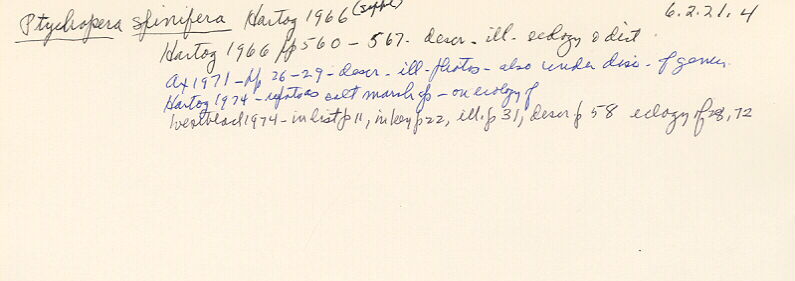 Ptychopera spinifera Hartog 1966 (suppl) 6.2.21.4
Hartog 1966 pp 560-567. descr - ill - ecology & dist
Ax 1971 - pp 26-29 - descr - ill - photos - also under disc. of genus.
Hartog 1974 - refsto as salt marsh sp - on ecology of
Westblad 1974 - in list p 11, in key p 22, ill. p 31, descr p 58 ecology p 28, 72